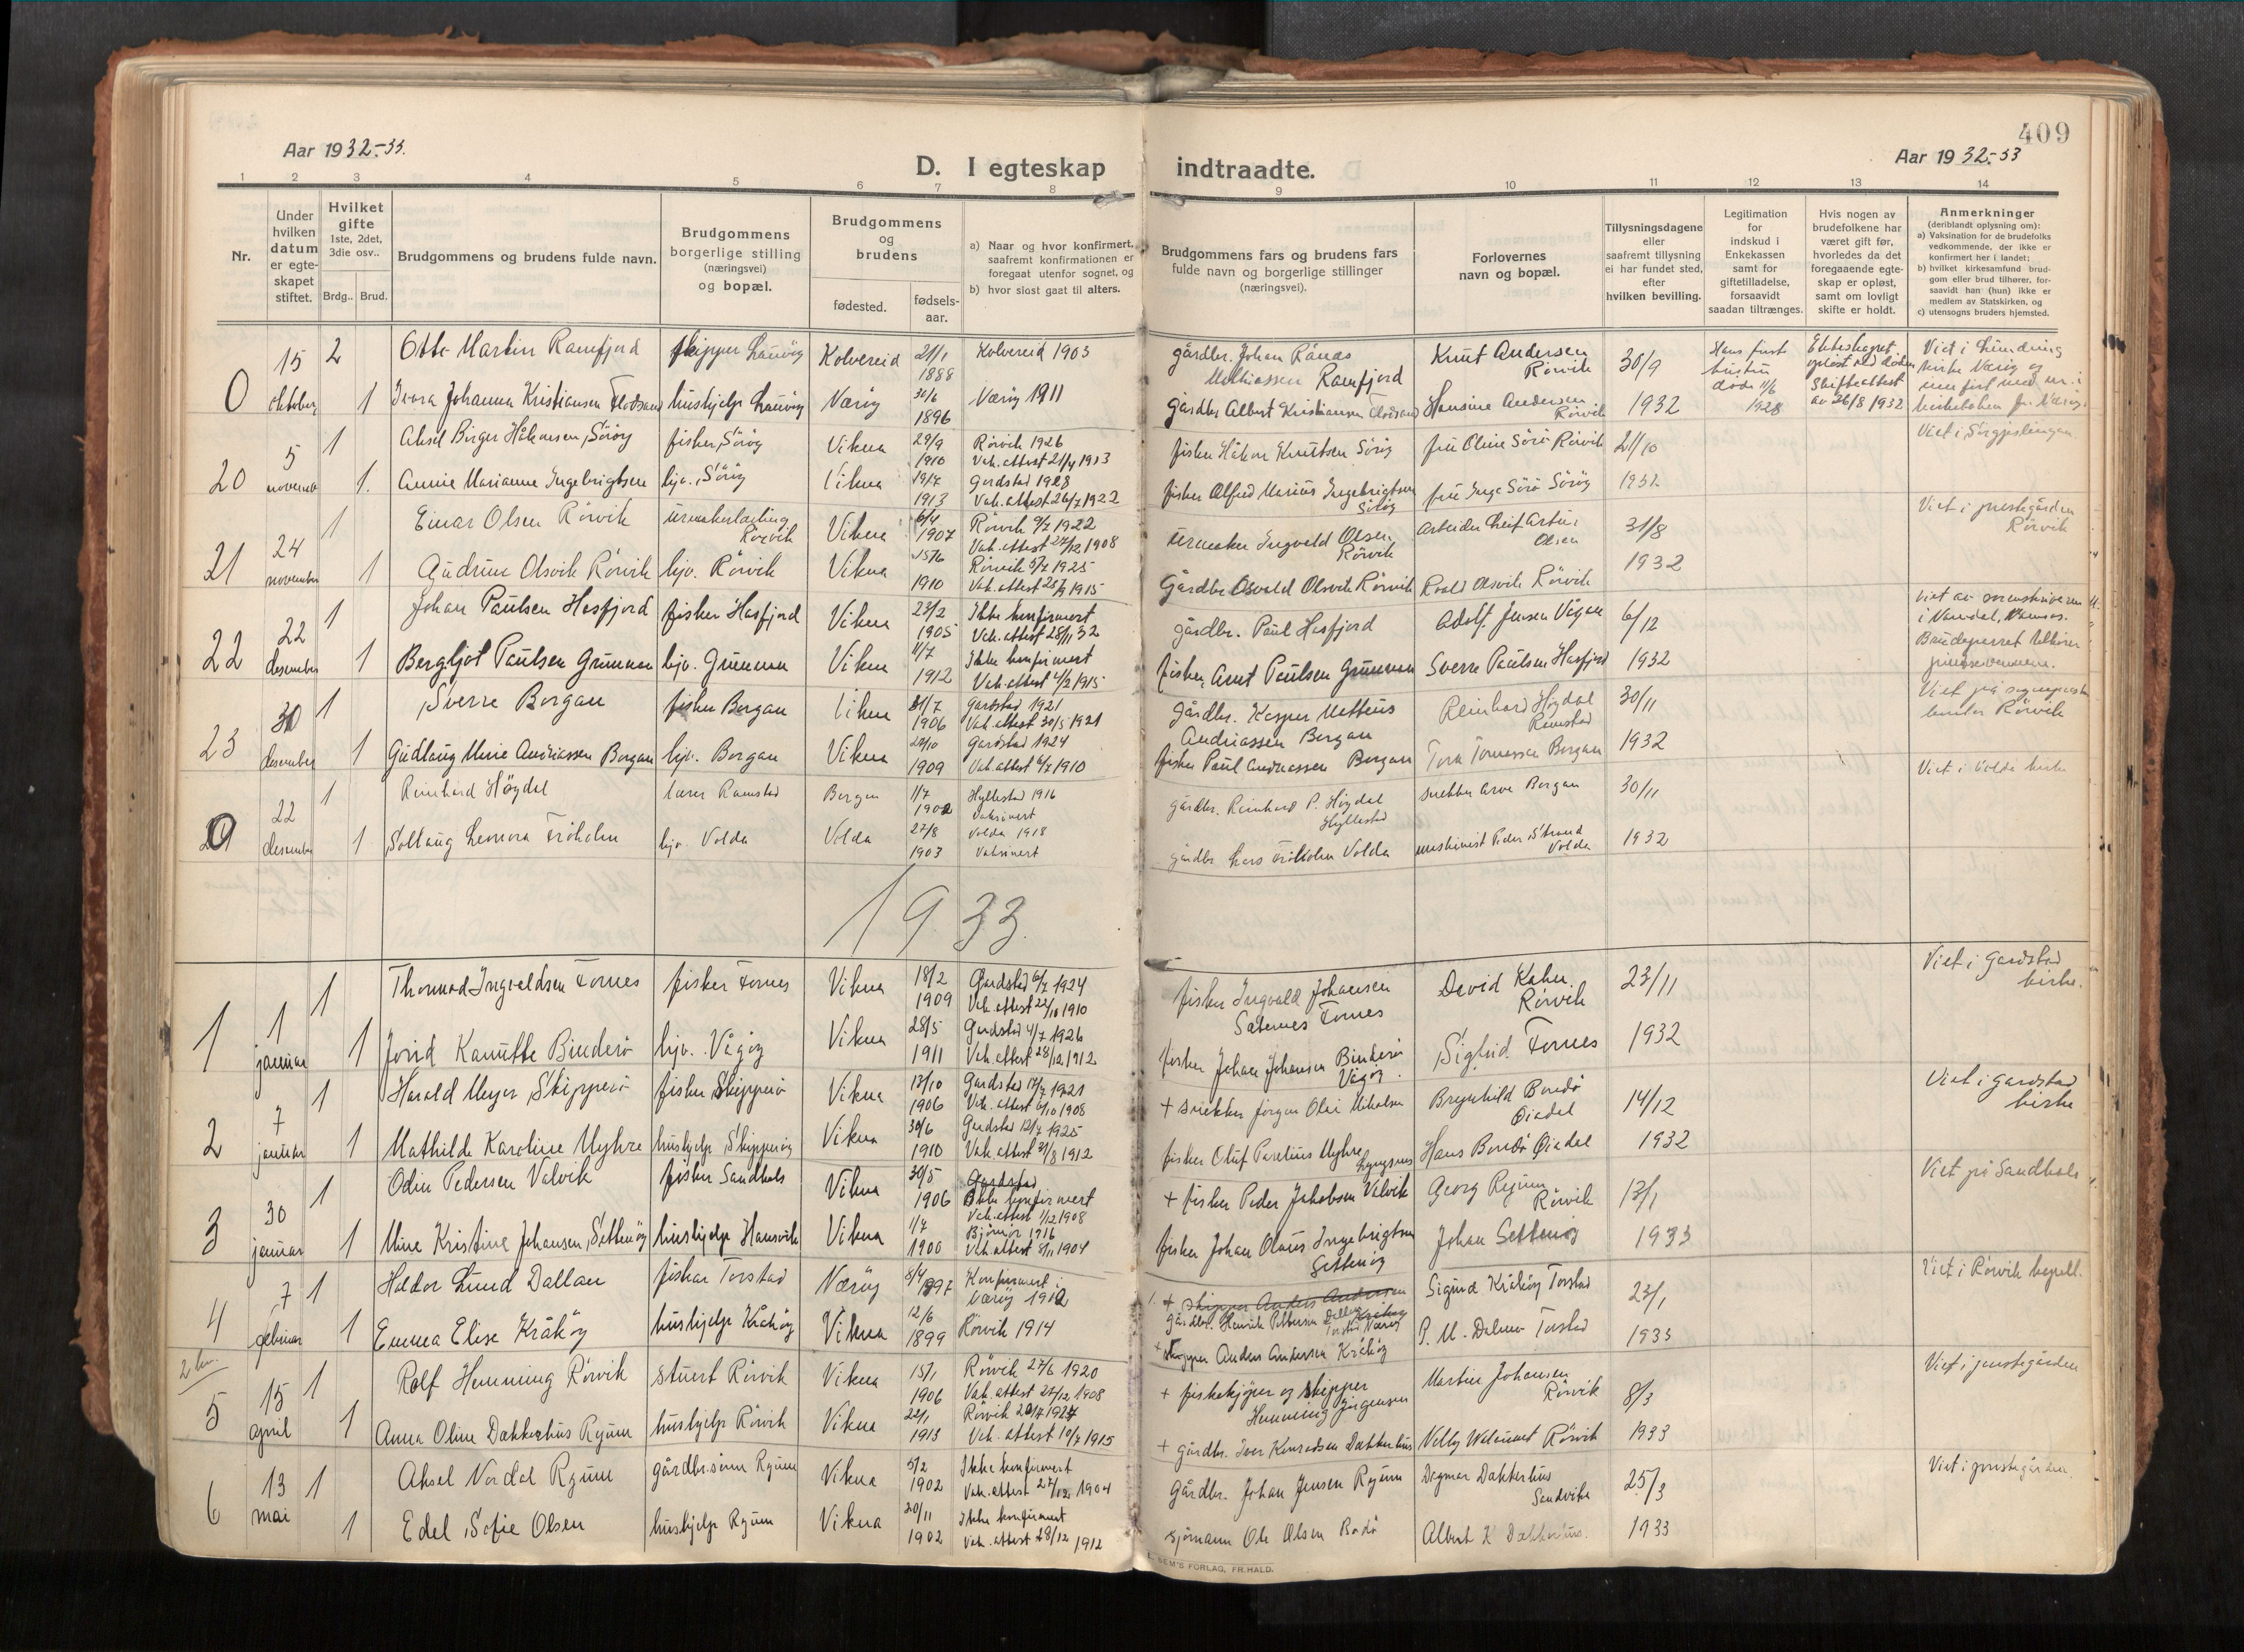 409
Aar 1932-33.
Aar 1932-33
D. I egteskap indtraadte.
1 2 3 4 5 6 7 8 9 10 11 12 13 14
Nr.
Under hvilken datum er egteskapet stiftet.
Hvilket gifte
1ste, 2det, 3die osv..
Brdg.. Brud.
Brudgommens og brudens fulde navn.
Brudgommens borgerlige stilling (næringsvei) og bopæl.
Brudgommens og brudens
fødested.
fødsels-aar.
a) Naar og hvor konfirmert, saafremt konfirmationen er foregaat utenfor sognet, og
b) hvor sidst gaat til alters.
Brudgommens fars og brudens fars fulde navn og borgerlige stillinger (næringsvei).
Forlovernes navn og bopæl.
Tillysningsdagene eller saafremt tillysning ei har fundet sted, efter hvilken bevilling.
Legitimation for indskud i Enkekassen samt for giftetilladelse, forsaavidt saadan tiltrænges.
Hvis nogen av brudefolkene har været gift før, hvorledes da det foregaaende egteskap er opløst, samt om lovligt skifte er holdt.
Anmerkninger
(deriblandt oplysning om):
a) Vaksination for de brudefolks vedkommende, der ikke er konfirmert her i landet;
b) hvilket kirkesamfund brudgom eller brud tilhører, forsaavidt han (hun) ikke er medlem av Statskirken, og
c) utensogns bruders hjemsted.
0 15 oktober 2 Otto Martin Ramfjord skipper Kolvereid 21/1 1888 Kolvereid 1903 gårdbr. Johan Mathiassen Ramfjord Knut Andersen Rörvik 30/9
1 Johanna Kristiansen Flodsand hushjelp Næröy 30/6 1896 Næröy 1911 Gårdbr Albert Kristiansen Flodsand Hansine Andersen Rörvik 1932
Hans first hustru døde 11/6 1928
Skifteattest av 26/8 1932
20 5 november 1 Aksel Birger Håkonsen, Söröy fisker, Söröy Vikna 29/9 1910 Rörvik 1926 Vak.attest 21/4 1913 fisker Håkon Knutsen Söröy fru Oline Sörö Rörvik 21/10
Viet i Sörgjeslingan
1. Annie Marianne Ingebrigtsen hjv. Söröy Vikna 19/7 1913 Gardstad 1928 Vak.attest 26/7 1922 fisker Alfred Marius Ingebrigtsen Söröy fru Inga Sörö Söröy 1932
21 24 november 1 Einar Olsen Rörvik urmakerlærling Rörvik Vikna 6/4 1907 Rörvik 9/7 1922 Vak.attest 27/12 1908 urmaker Ingvald Olsen Rörvik arbeider Leif Artur Olsen 31/8
Viet i prestegården Rörvik
1 Gudrun Olsvik Rörvik hjv. Rörvik Vikna 15/6 1910 Rörvik 5/7 1925 Vak.attest 1915 Gårdbr Osvald Olsvik Rörvik Roald Olsvik Rörvik 1932
22 22 desember 1 Johan Paulsen Hasfjord fisker Hasfjord Vikna 23/2 1905 Ikke konfirmert Vak.attest 28/11 32 gårdbr. Paul Hasfjord Adolf Jensen Vågan 6/12
Viet av sorenskriveren i Namdal, Namsos. Brudeparret tilhører pinsevennene.
1 Bergljot Paulsen Grunnan hjv. Grunnan Vikna 4/7 1912 Ikke konfirmert Vak.attest 4/2 1915 fisker, Arnt Paulsen Grunnan Sverre Paulsen Hasfjord 1932
23 30 desember 1 Sverre Borgan fisker Borgan Vikna 21/7 1906 Gardstad 1921 Vak.attest 30/5 1921 gårdbr. Kasper Matteus Andriassen Borgan Reinhard Högdal Ramstad 30/11
Viet på sogneprestkontor Rörvik
1 Gudlaug Marie Andriassen Borgan hjv. Borgan Vikna 28/10 1909 Gardstad 1924 Vak.attest 4/7 1910 fisker Paul Andriassen Borgan Tora Tomassen Borgan 1932
0 22 desember 1 Reinhard Högdal lærer Ramstad Bergen 1/7 1902 Hyllestad 1916 Vaksinert gårdbr. Reinhard P. Högdal Hyllestad snekker Arve Borgan 30/11
Viet i Volda kirke
1 Sollaug Leonora Fröholm hjv. Volda Volda 27/8 1903 Volda 1918 Vaksinert gårdbr Lars Fröholm Volda maskinist Peder Strand Volda 1932
1933.
1 1 januar 1 Thormod Ingvaldsen Fornes fisker Fornes Vikna 18/2 1909 Gardstad 6/7 1924 Vak.attest 22/10 1910 fisker Ingvald Johansen Sæternes Fornes David Kahn Rörvik 23/11
Viet i Gardstad kirke.
1 Jorid Kanutte Binderö hjv. Vågöy Vikna 28/5 1911 Gardstad 4/7 1926 Vak.attest 28/12 1912 fisker Johan Johansen Binderö Vågöy. Sigfrid Fornes 1932
2 7 januar 1 Harald Meyer Skipperö fisker Skipperö Vikna 13/10 1906 Gardstad 17/7 1921 Vak.attest 6/10 1908 + snekker Jörgen Olai Mikalsen Brynhild Bondö Öiadal 14/12
Viet i Gardstad kirke
1 Mathilde Karoline Myhre hushjelp Skipperöy Vikna 30/6 1910 Gardstad 12/7 1925 Vak.attest 31/8 1912 fisker Oluf Parelius Myhre Lyngsnes Hans Bondö Öiadal 1932
3 30 januar 1 Odin Pedersen Valvik fisker Sandhals Vikna 30/5 1906 Gardstad Ikke konfirmert Vak.attest 1/12 1908 + fisker Peder Jakobsen Valvik Georg Ryum Rörvik 13/1
Viet på Sandhals
1 Mina Kristine Johansen, Settenöy hushjelp Hansvik Vikna 1/7 1900 Björnör 1916 Vak.attest 8/11 1904 fisker Johan Olaus Ingebrigtsen Settenöy Johan Settenöy 1933
4 7 februar 1 Haldor Lund Dallan fisker Torstad Næröy 8/4 1897 Konfirmert Næröy 1912 + skipper Anders Andersen gårdbr. Henrik Pettersen Sigurd Kråköy Torstad 23/1
Viet i Rörvik kapell.
1 Emma Elise Kråköy hushjelp Kråköy Vikna 12/6 1899 Rörvik 1914 + skipper Anders Andersen Kråköy P. M. Dalum Torstad 1933
5 15 april 1 Rolf Henning Rörvik stuert Rörvik Vikna 15/1 1906 Rörvik 27/6 1920 Vak.attest 27/12 1908 + fiskekjöper og skipper Henning Jörgensen Martin Johansen Rörvik 8/3
Viet i prestegården
1 Anna Oline Dakkerhus Ryum hushjelp Rörvik Vikna 22/1 1913 Rörvik 1927 Vak.attest 10/7 1915 + gårdbr. Iver Konradsen Dækkerhus Nelly Rörvik 1933
6 13 mai 1 Aksel Nordal Ryum gårdbr.sönn Ryum Vikna 5/2 1902 Ikke konfirmert Vak.attest 27/12 1904 Gårdbr. Johan Jensen Ryum Dagmar Dakkerhus Sandvika 25/3
Viet i prestegården.
1 Edel Sofie Olsen hushjelp Ryum Vikna 20/11 1902 Ikke konfirmert Vak.attest 28/12 1912 sjömann Ole Olsen Bodö Albert K Dækkerhus. 1933
SEM'S FORLAG, FR.HALD.